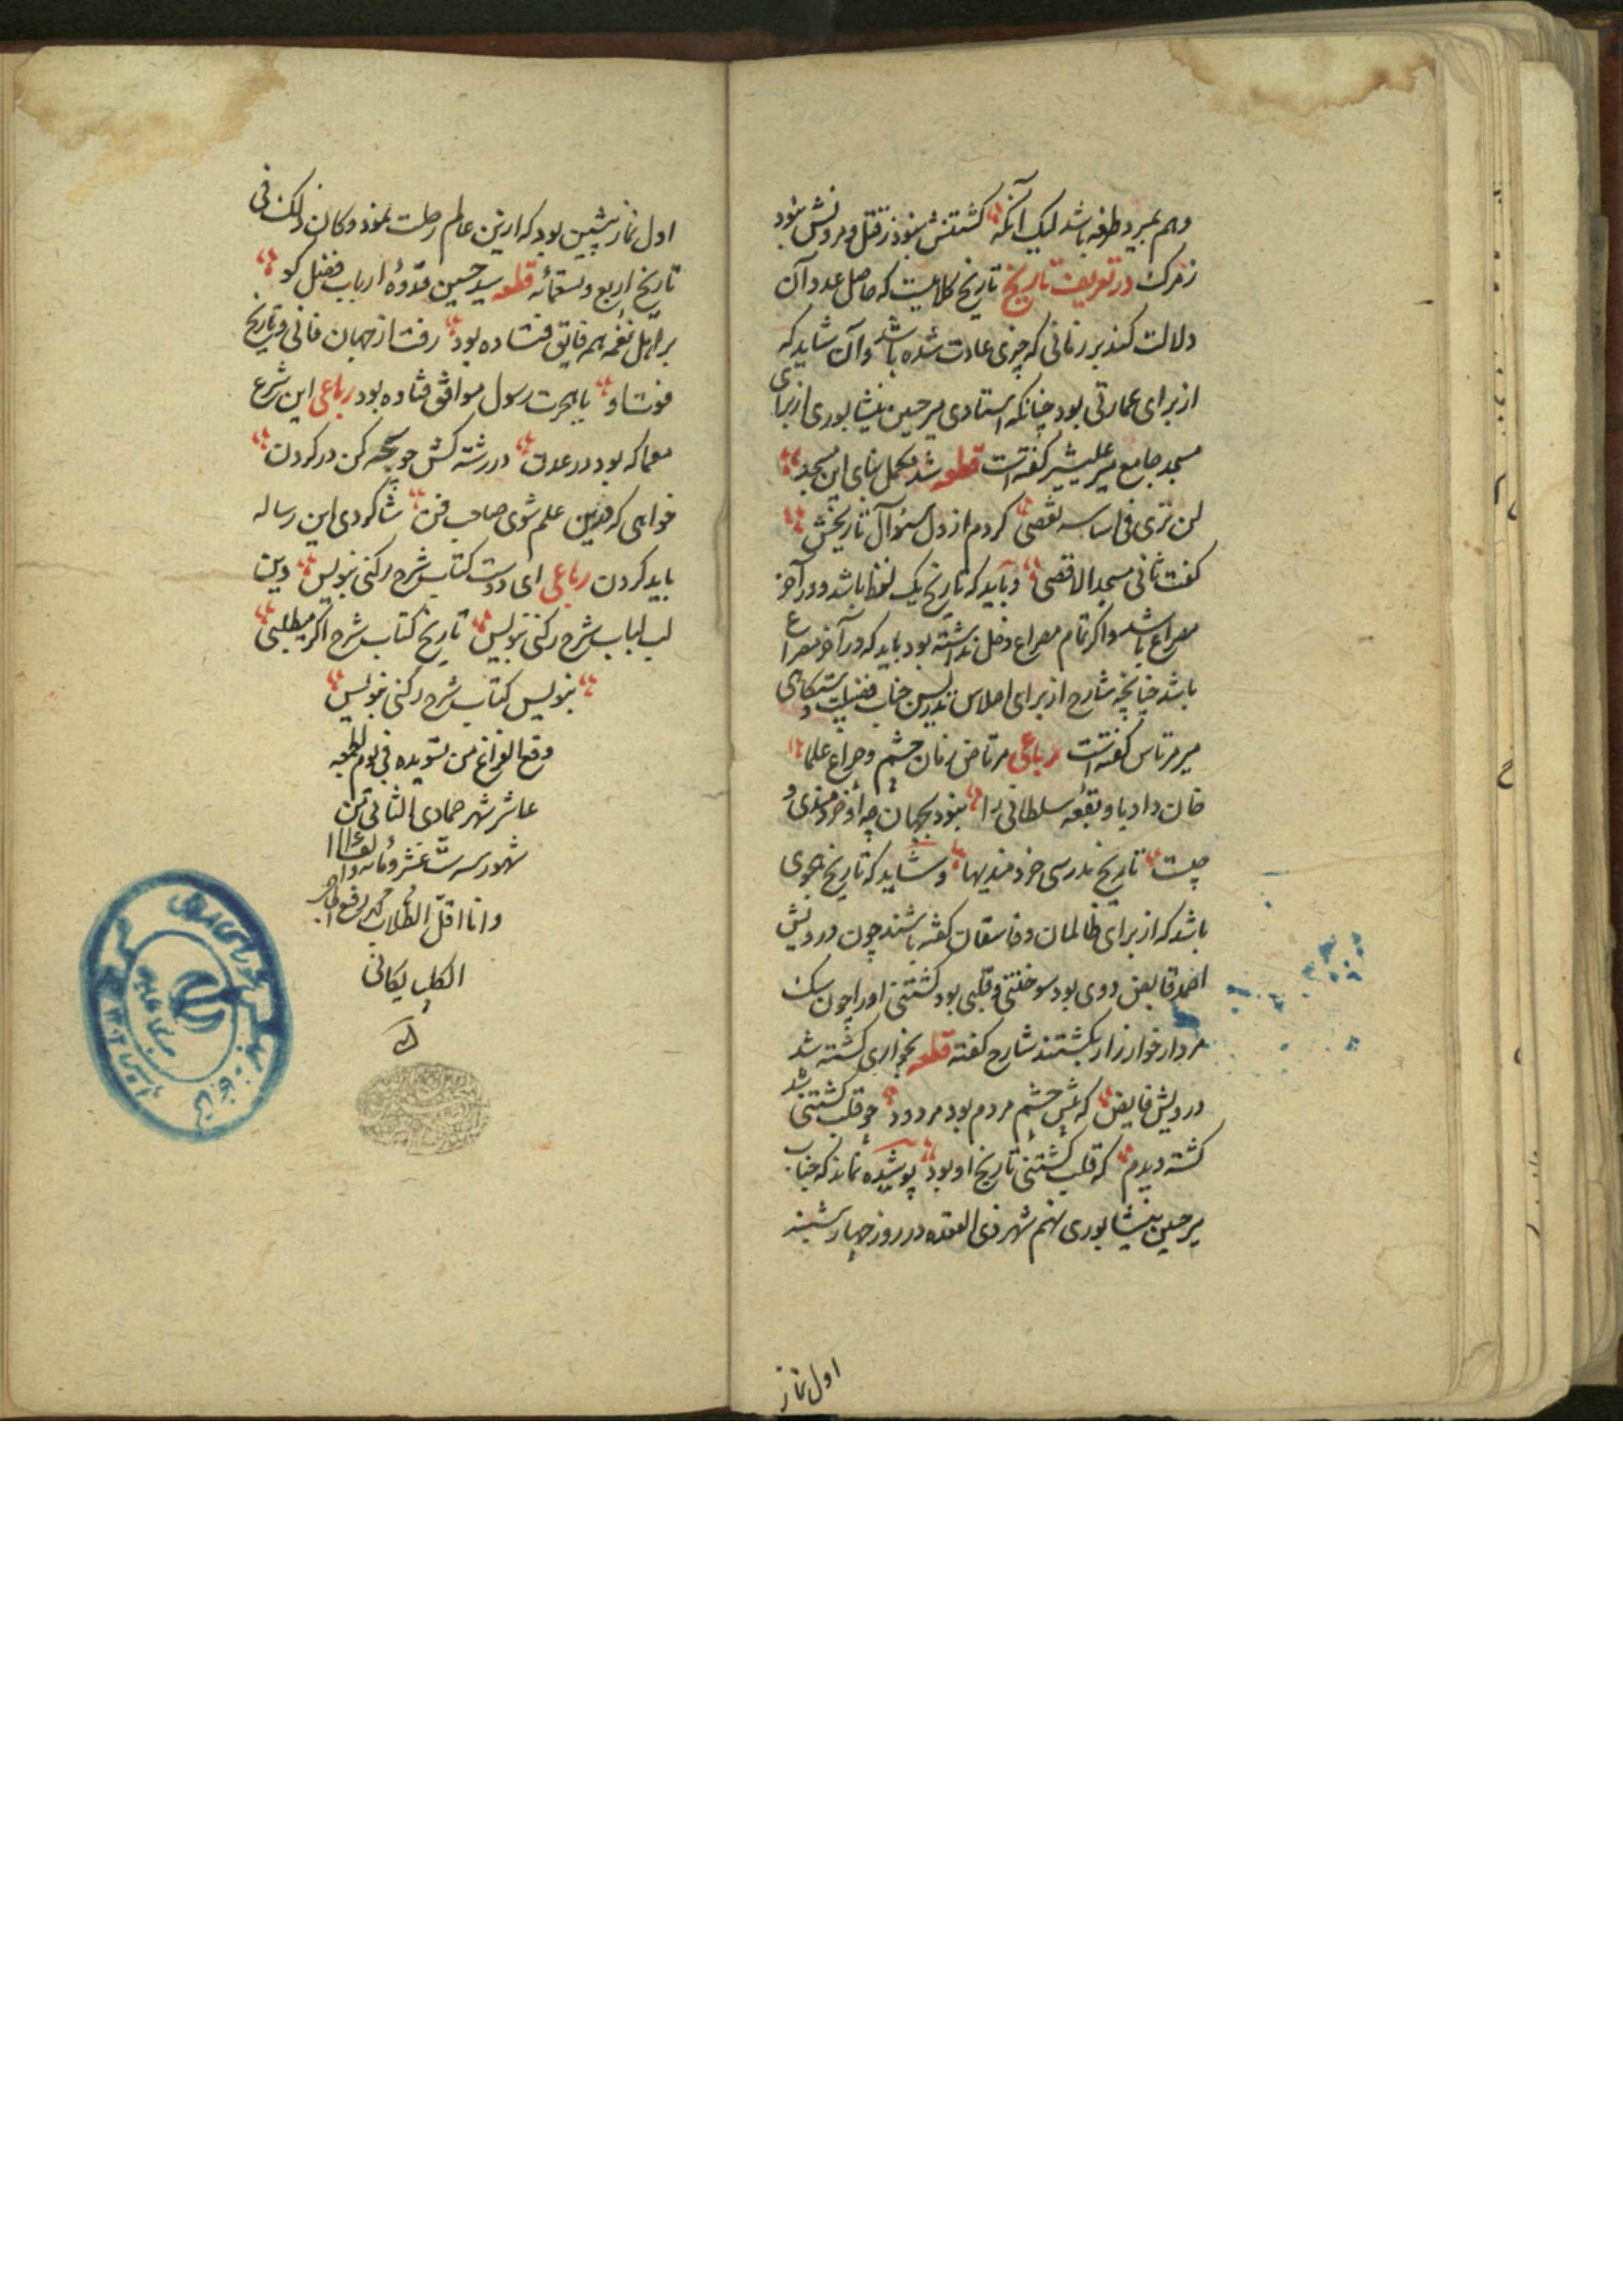 وهم نمیرد طرفه باشد لیک آنکه کشتنش نبود ز قتل و مردنش نبود
ز مرک در تعریف تاریخ تاریخ کلامیست که حاصل عدد آن
دلالت کند بر زمانی که چیزی حادث شده باشد و آن شاید که
از برای عمارتی بود چنانکه استادی میر حسین نیشابوری از برای
مسجد جامع میر علیشیر کفته است قطعه شد مکمل بنای این مسجد
لن تری فی اساسه نقصی کردم از دل سؤال تاریخش
کفت ثانی مسجد الاقصی و باید که تاریخ یک لفظ باشد و در آخر
مصراع باشد و اکر تمام مصراع دخل نداشته بود باید که در آخر مصراع
باشد چنانچه شارح از برای اجلاس تدریس جناب فضیلت دستکاهی
میر مرتاض کفته است رباعی مرتاض زمان چشم و چراغ علما
خان داد باو بقعه سلطانی را نبود بجهان چه او خردمندی و
چیست تاریخ مدرسی خردمندیها و شاید که تاریخ هجوی
باشد که از برای ظالمان و فاسقان کفته باشند چون درویش
احمد قابض دوی بود سوختنی و قلبی بود کشتنی او را چون سک
مردار خوار زار بکشتند شارح کفته قطعه بخواری کشته شد
درویش قابض که پیش چشم مردم بود مردود چو قلب کشتنی شد
کشته دیدم که قلب کشتنی تاریخ او بود پوشیده نماند که جناب
میر حسین نیشابوری نهم شهر ذی القعده در روز چهارشنبه
اول نماز
اول نماز پیشین بود که ازین عالم رحلت نمود و کان ذلک فی
تاریخ اربع و تسعمائه قطعه سید حسین قدوهٔ ارباب فضل کو
بر اهل نغمه همه فایق فتاده بود رفت از جهان فانی و تاریخ
فوت او با هجرت رسول موافق فتاده بود رباعی این شرع
معما که بود در عدن در رشته کش چو پیچه کن در کردن
خواهی که درین علم شوی صاحب فن شاکردی این رساله
باید کردن رباعی ای دوست کتاب شرح رکنی بنویس وین
لب لباب شرح رکنی بنویس تاریخ کتاب شرح اکر میطلبی
بنویس کتاب شرح رکنی بنویس
وقع الفراغ من تسویده فی یوم الجمعه
عاشر شهر جمادی الثانی من
شهور سنه ست عشر و مأته و الف ١١١٦
و انا اقل الطلاب محمد رفیع
الکلپایکانی